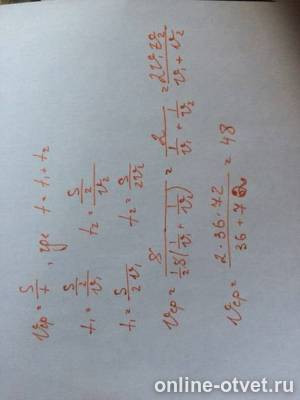 vср = S/t, где t = t₁ + t₂
t₁ = (S/2)/v₁ t₂ = (S/2)/v₂
t₁ = S/2v₁ t₂ = S/2v₂
vср = S/(½S(1/v₁ + 1/v₂)) = 2/(1/v₁ + 1/v₂) = 2v₁v₂/(v₁ + v₂)
vср = 2·36·72/(36 + 72) = 48
online-otvet.ru